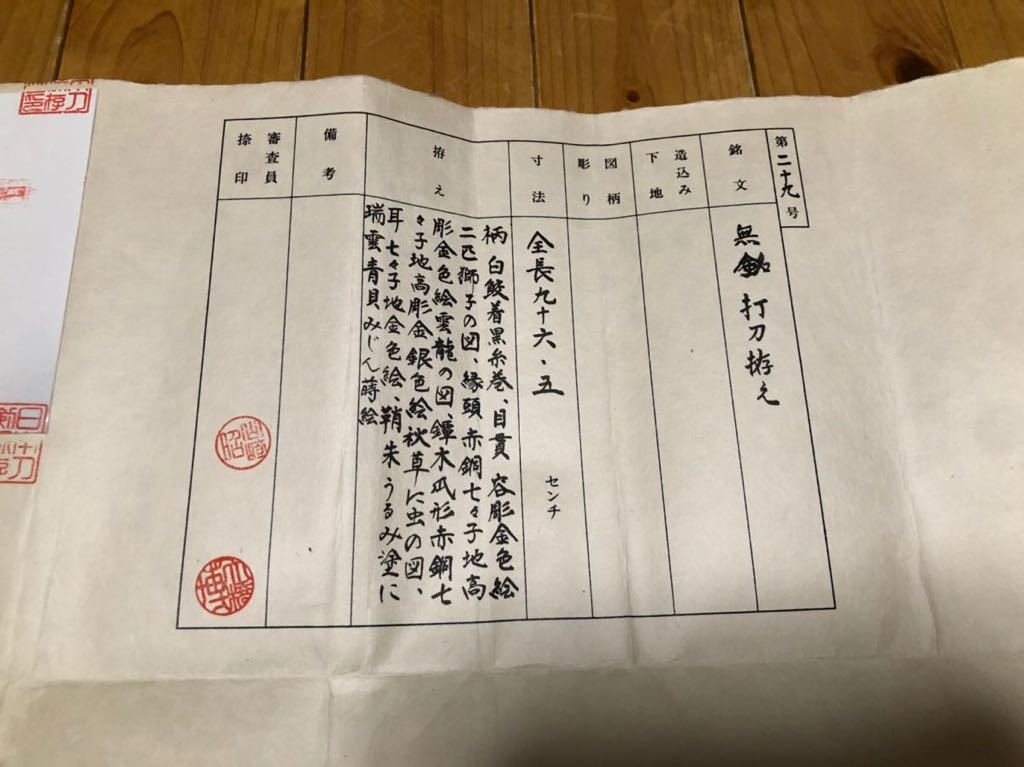 第二十九号
銘文
無銘 打刀拵え
造込み
下地
図柄
彫り
寸法
全長九十六・五 センチ
拵え
柄 白鮫着黒糸巻、目貫 容彫金色絵
二匹獅子の図、縁頭 赤銅七々子地高
彫金色絵雲龍の図、鐔木瓜形赤銅七
々子地高彫金銀色絵秋草に虫の図、
耳 七々子地金色絵、鞘 朱うるみ塗に
瑞雲青貝みじん蒔絵
備考
審査員
捺印